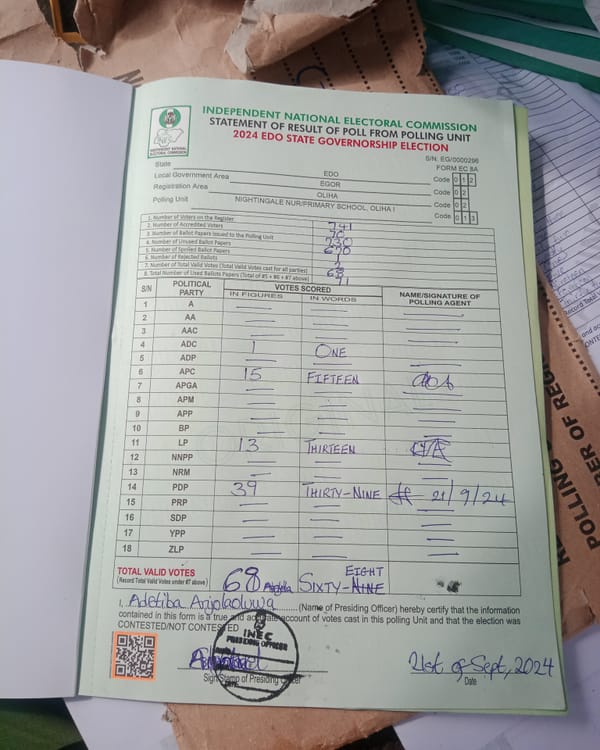 INDEPENDENT NATIONAL ELECTORAL COMMISSION
STATEMENT OF RESULT OF POLL FROM POLLING UNIT
2024 EDO STATE GOVERNORSHIP ELECTION
INDEPENDENT NATIONAL ELECTORAL COMMISSION
S/N: EG/0000296
FORM EC 8A
State EDO Code 0 1 2
Local Government Area EGOR Code 0 2
Registration Area OLIHA Code 0 2
Polling Unit NIGHTINGALE NUR/PRIMARY SCHOOL, OLIHA I Code 0 1 3
1. Number of Voters on the Register 741
2. Number of Accredited Voters
3. Number of Ballot Papers Issued to the Polling Unit
4. Number of Unused Ballot Papers
5. Number of Spoiled Ballot Papers
6. Number of Rejected Ballots
7. Number of Total Valid Votes (Total Valid Votes cast for all parties) 68
8. Total Number of Used Ballots Papers (Total of #5 + #6 + #7 above) 71
S/N POLITICAL PARTY VOTES SCORED NAME/SIGNATURE OF POLLING AGENT
IN FIGURES IN WORDS
1 A
2 AA
3 AAC
4 ADC 1 ONE
5 ADP
6 APC 15 FIFTEEN
7 APGA
8 APM
9 APP
10 BP
11 LP 13 THIRTEEN
12 NNPP
13 NRM
14 PDP 39 THIRTY-NINE 21/9/24
15 PRP
16 SDP
17 YPP
18 ZLP
TOTAL VALID VOTES 68 SIXTY-NINE EIGHT
(Record Total Valid Votes under #7 above)
I, Adetiba Anjolaoluwa (Name of Presiding Officer) hereby certify that the information
contained in this form is a true and accurate account of votes cast in this polling Unit and that the election was
CONTESTED/NOT CONTESTED
INEC
PRESIDING OFFICER
DATE
Sign/Stamp of Presiding Officer
21st of Sept, 2024
Date